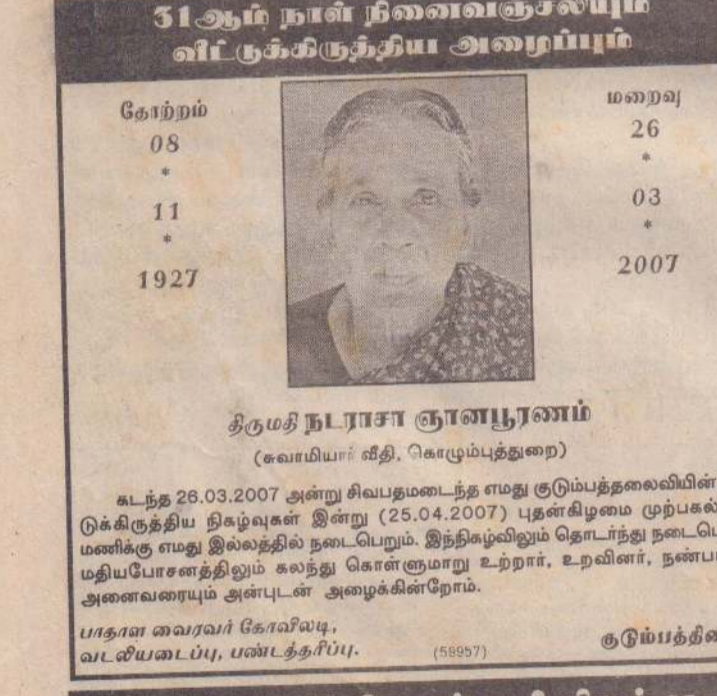 31ஆம் நாள் நினைவஞ்சலியும்
வீட்டுக்கிருத்திய அழைப்பும்
தோற்றம்
08
*
11
*
1927
மறைவு
26
*
03
*
2007
திருமதி நடராசா ஞானபூரணம்
(சுவாமியார் வீதி, கொழும்புத்துறை)
கடந்த 26.03.2007 அன்று சிவபதமடைந்த எமது குடும்பத்தலைவியின்
டுக்கிருத்திய நிகழ்வுகள் இன்று (25.04.2007) புதன்கிழமை முற்பகல்
மணிக்கு எமது இல்லத்தில் நடைபெறும். இந்நிகழ்விலும் தொடர்ந்து நடைபெ
மதியபோசனத்திலும் கலந்து கொள்ளுமாறு உற்றார், உறவினர், நண்ப
அனைவரையும் அன்புடன் அழைக்கின்றோம்.
பாதாள வைரவர் கோவிலடி,
வடலியடைப்பு, பண்டத்தரிப்பு.
(59957)
குடும்பத்தின